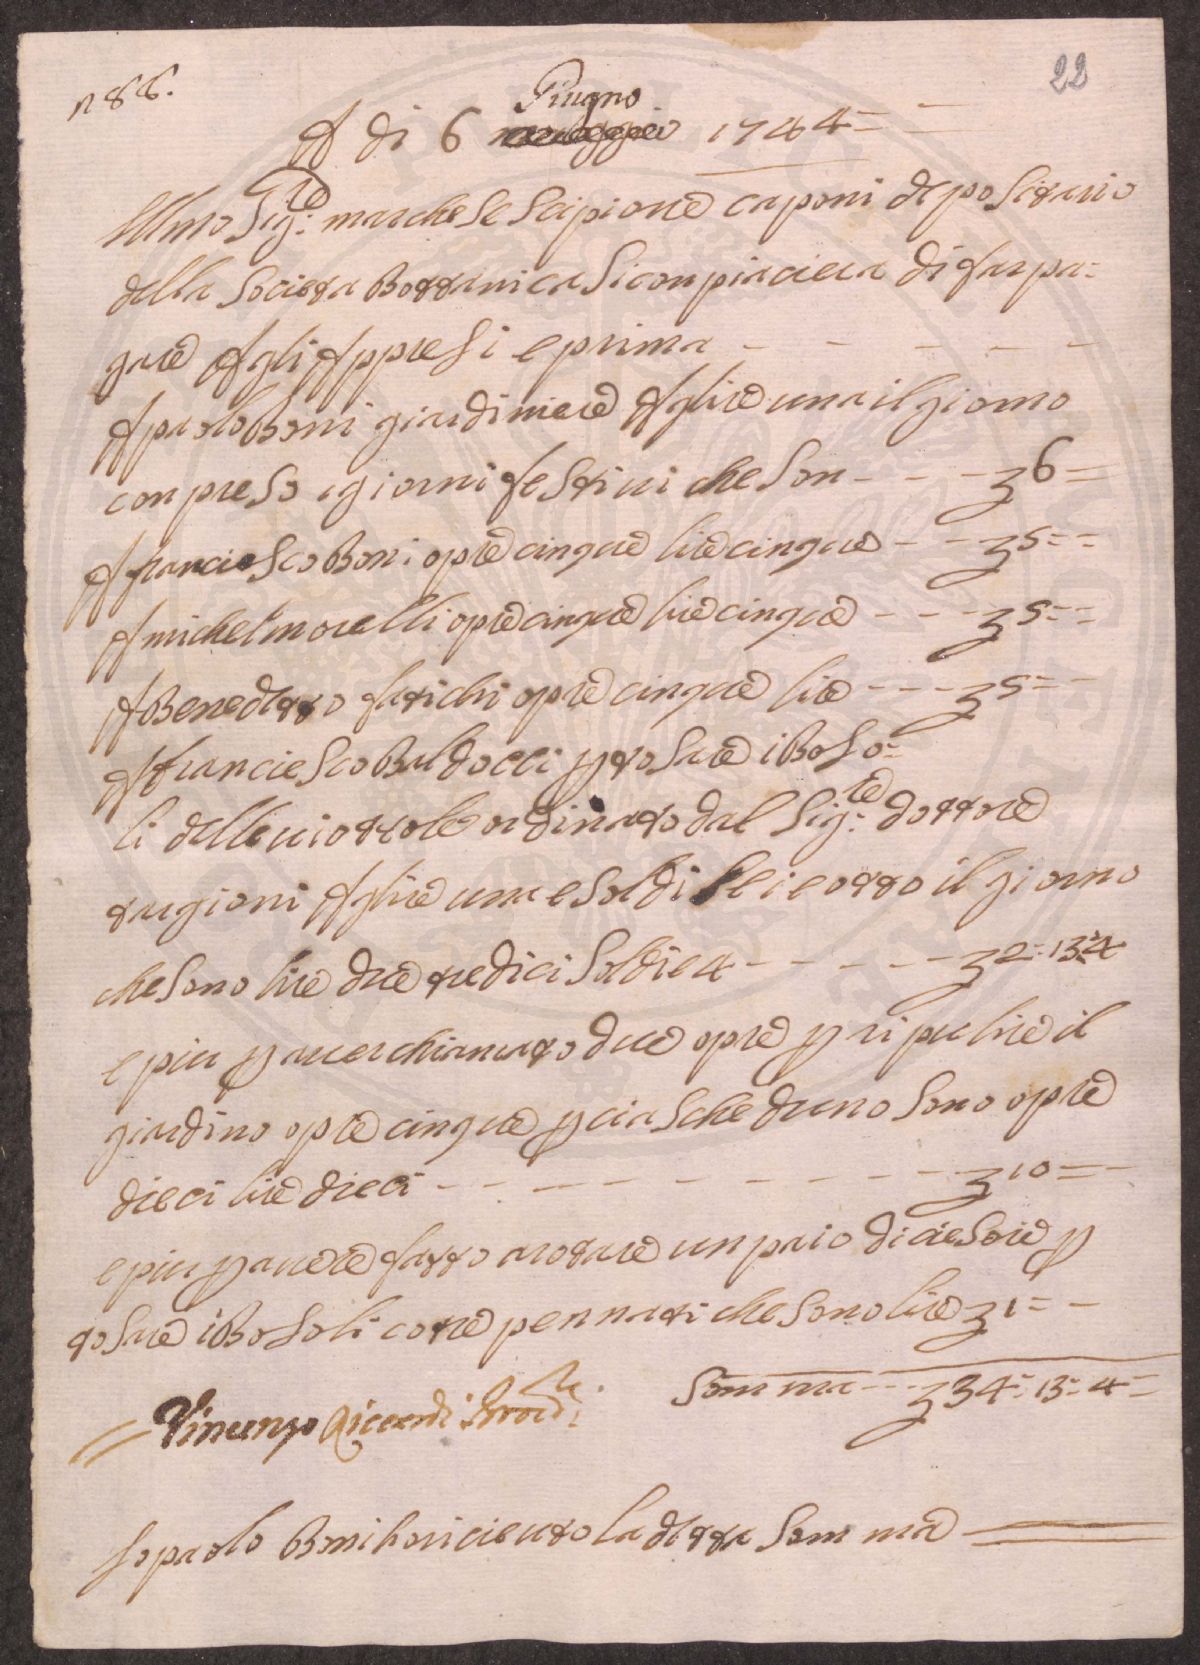 n 86.
22
Giugno
A di 6 maggio 1744=
Illmo Sig:re marchese Scipione caponi depositario
della Societa Bottanica Si conpiaciera di far pa=
gare Agli Appresi e prima
A paolo Boni giardiniere A lire una il giorno
conpreso i giorni festivi che Son - - - 6=
A franciesco Boni opre cinque lire cinque - - 5= =
A michel morelli opre cinque lire cinque - - - 5= =
A Benedetto fatichi opre cinque lire - - - 5= =
A franciesco Baldocci p tosare i Boso=
li delle viottole ordinato dal Sig:re dottore
targioni A lire una e soldi sei e otto il giorno
che Sono lire due tredici Soldi e 4 - - - 2=13=4
e piu p aver chiamato due opre p ripulire il
giardino opre cinque p ciascheduno Sono opre
dieci lire dieci - - - 10=
e piu p avere fatto arotare un paio di ciesoie p
tosare i Bosoli cotre pennati che Sono lire 1= -
Somma - - 34=13=4=
Vincenzo Riccardi
Io paolo Boni o ricieuto la detta Somma